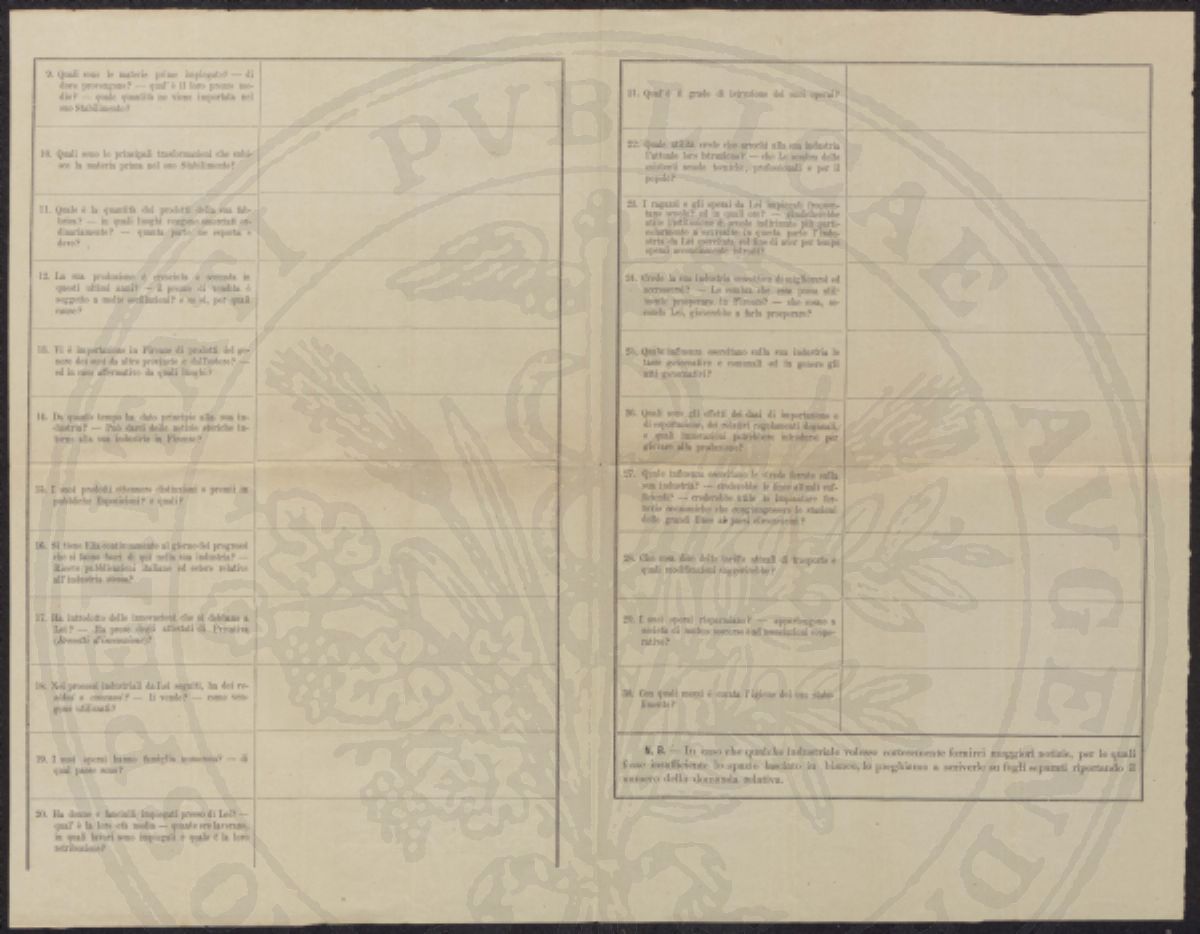 9. Quali sono le materie prime impiegate? — di
dove provengono? — qual'è il loro prezzo me-
dio? — quale quantità ne viene importata nel
suo Stabilimento?
10. Quali sono le principali trasformazioni che subi-
sce la materia prima nel suo Stabilimento?
11. Quale è la quantità dei prodotti della sua fab-
brica? — in quali luoghi vengono smerciati or-
dinariamente? — quanta parte ne esporta e
dove?
12. La sua produzione è cresciuta o scemata in
questi ultimi anni? — il prezzo di vendita è
soggetto a molte oscillazioni? e se sì, per quali
cause?
13. Vi è importazione in Firenze di prodotti del ge-
nere dei suoi da altre provincie o dall'estero? —
ed in caso affermativo da quali luoghi?
14. Da quanto tempo ha dato principio alla sua in-
dustria? — Può darci delle notizie storiche in-
torno alla sua industria in Firenze?
15. I suoi prodotti ottennero distinzioni e premi in
pubbliche Esposizioni? e quali?
16. Si tiene Ella continuamente al giorno dei progressi
che si fanno fuori di qui nella sua industria? —
Riceve pubblicazioni italiane ed estere relative
all'industria stessa?
17. Ha introdotto delle innovazioni che si debbano a
Lei? — Ha preso degli attestati di Privativa
(Brevetti d'invenzione)?
18. Nei processi industriali da Lei seguiti, ha dei re-
sidui o cascami? — li vende? — come ven-
gono utilizzati?
19. I suoi operai hanno famiglia numerosa? — di
qual paese sono?
20. Ha donne e fanciulli impiegati presso di Lei? —
qual'è la loro età media — quante ore lavorano,
in quali lavori sono impiegati e quale è la loro
retribuzione?
21. Qual'è il grado di istruzione dei suoi operai?
22. Quale utilità crede che arrechi alla sua industria
l'attuale loro istruzione? — che Le sembra delle
esistenti scuole tecniche, professionali e per il
popolo?
23. I ragazzi e gli operai da Lei impiegati frequen-
tano scuole? ed in quali ore? — giudicherebbe
utile l'istituzione di scuole indirizzate più parti-
colarmente a
stria da Lei esercitata, col fine di aver per tempo
operai secondariamente istruiti?
24. Crede la sua industria suscettiva di migliorarsi ed
accrescersi? — Le sembra che essa possa util-
mente prosperare in Firenze? — che cosa, se-
condo Lei, gioverebbe a farla prosperare?
25. Quale influenza esercitano sulla sua industria le
tasse governative e comunali ed in genere gli
atti governativi?
26. Quali sono gli effetti dei dazi di importazione e
di esportazione, dei relativi regolamenti doganali,
e quali innovazioni potrebbero introdursi per
giovare alla produzione?
27. Quale influenza esercitano le strade ferrate sulla
sua industria? — crederebbe le linee attuali suf-
ficienti? — crederebbe utile lo impiantare fer-
rovie economiche che congiungessero le stazioni
delle grandi linee ai paesi circonvicini?
28. Che cosa dice delle tariffe attuali di trasporto e
quali modificazioni suggerirebbe?
29. I suoi operai risparmiano? — appartengono a
società di mutuo soccorso e ad associazioni coope-
rative?
30. Con quali mezzi è curata l'igiene del suo stabi-
limento?
N. B. — In caso che qualche industriale volesse cortesemente fornirci maggiori notizie, per le quali
fosse insufficiente lo spazio lasciato in bianco, lo preghiamo a scriverle su fogli separati riportando il
numero della domanda relativa.
PUBLICAE